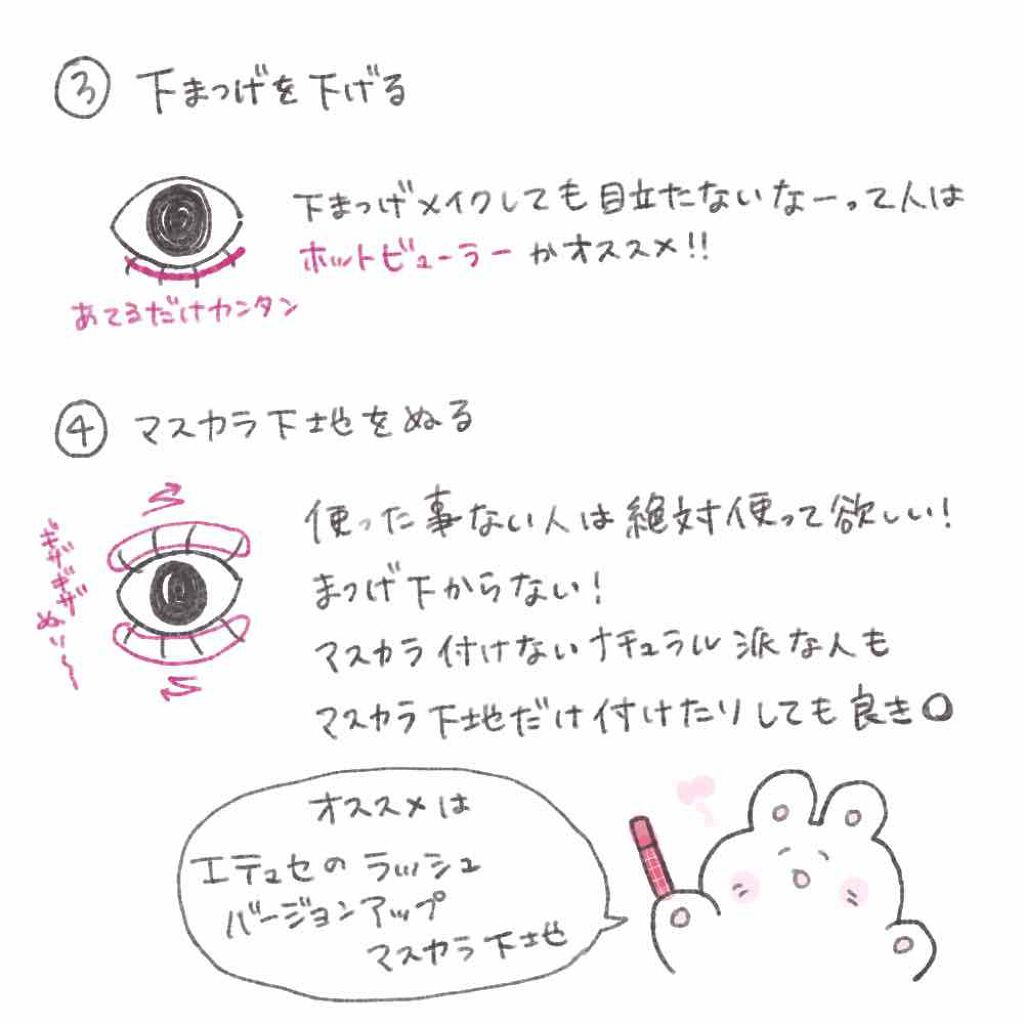 ③ 下まつげを下げる
下まつげメイクしても目立たないなーって人は
ホットビューラーがオススメ!!
あてるだけカンタン
④ マスカラ下地をぬる
ギザギザぬり〜
使った事ない人は絶対使って欲しい!
まつげ下がらない!
マスカラ付けないナチュラル派な人も
マスカラ下地だけ付けたりしても良き○
オススメは
エテュセのラッシュ
バージョンアップ
マスカラ下地